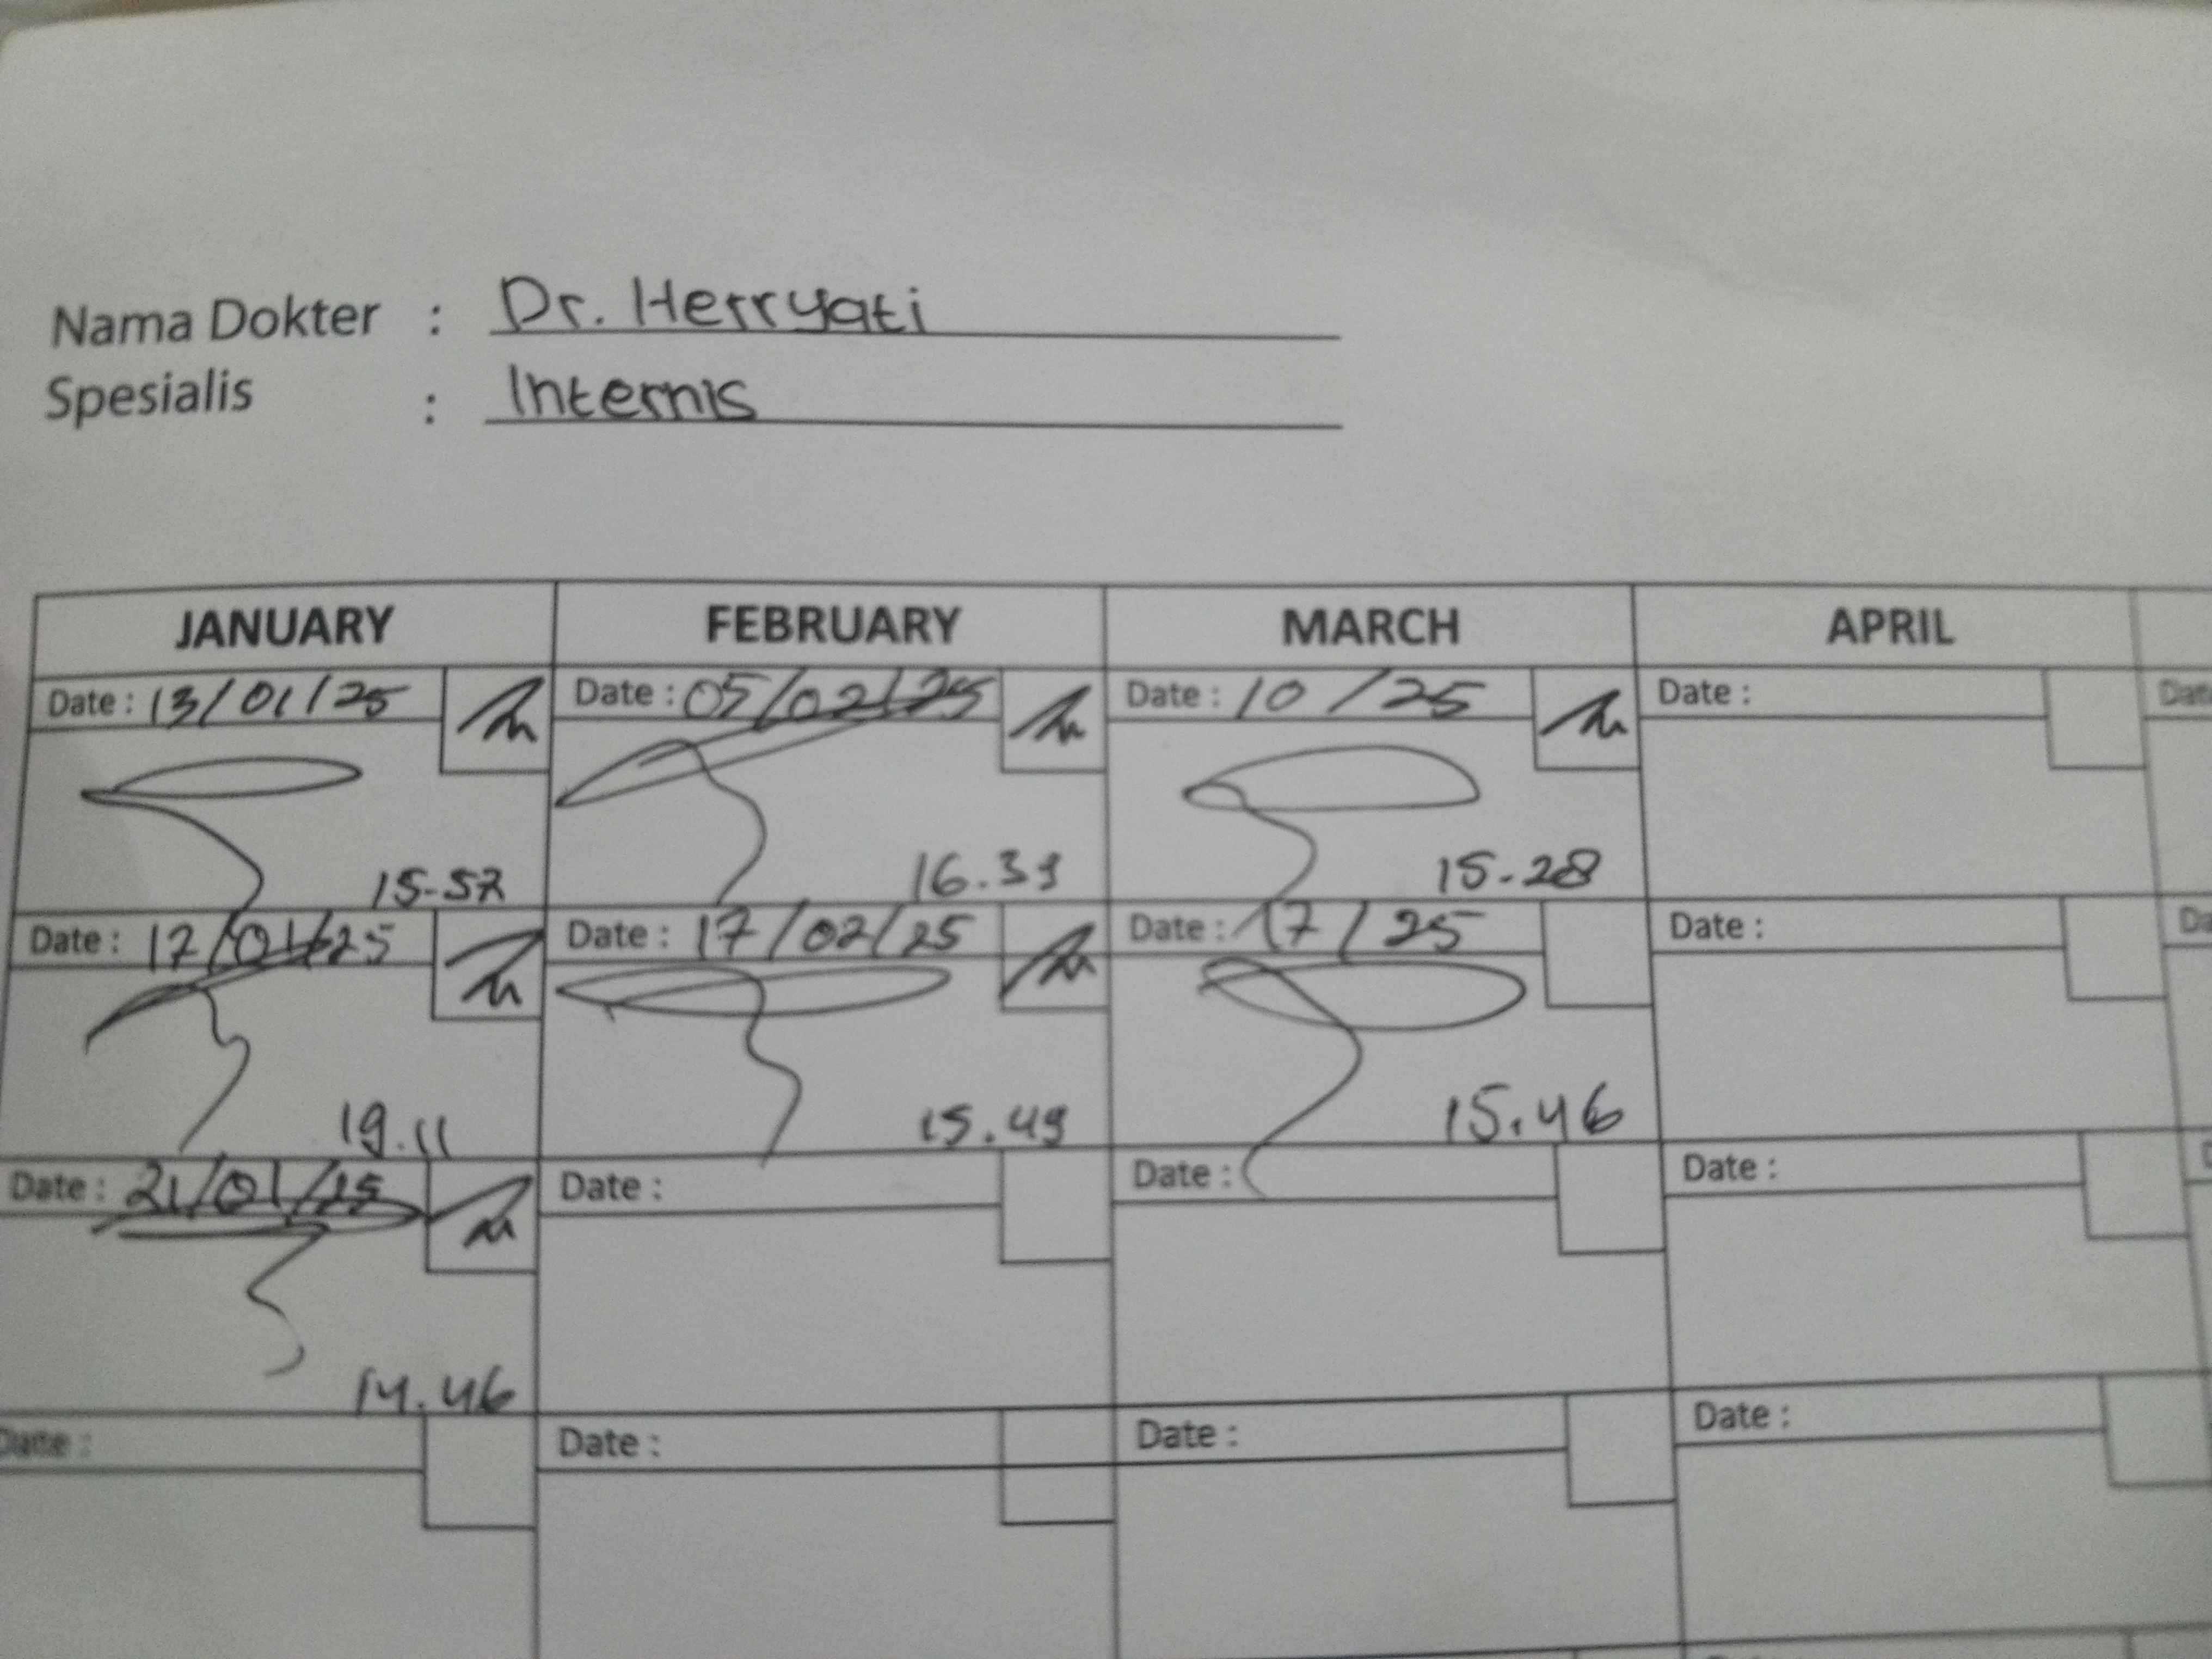 Nama Dokter : Dr. Herryati
Spesialis : Internis
JANUARY FEBRUARY MARCH APRIL
Date : 13/01/25 Date : 05/02/25 Date : 10 /25 Date :
15-57 16.39 15-28
Date : 17/01/25 Date : 17/02/25 Date : 17 / 25 Date :
19.11 15.49 15.46
Date : 21/01/25 Date : Date : Date :
14.46
Date : Date : Date : Date :